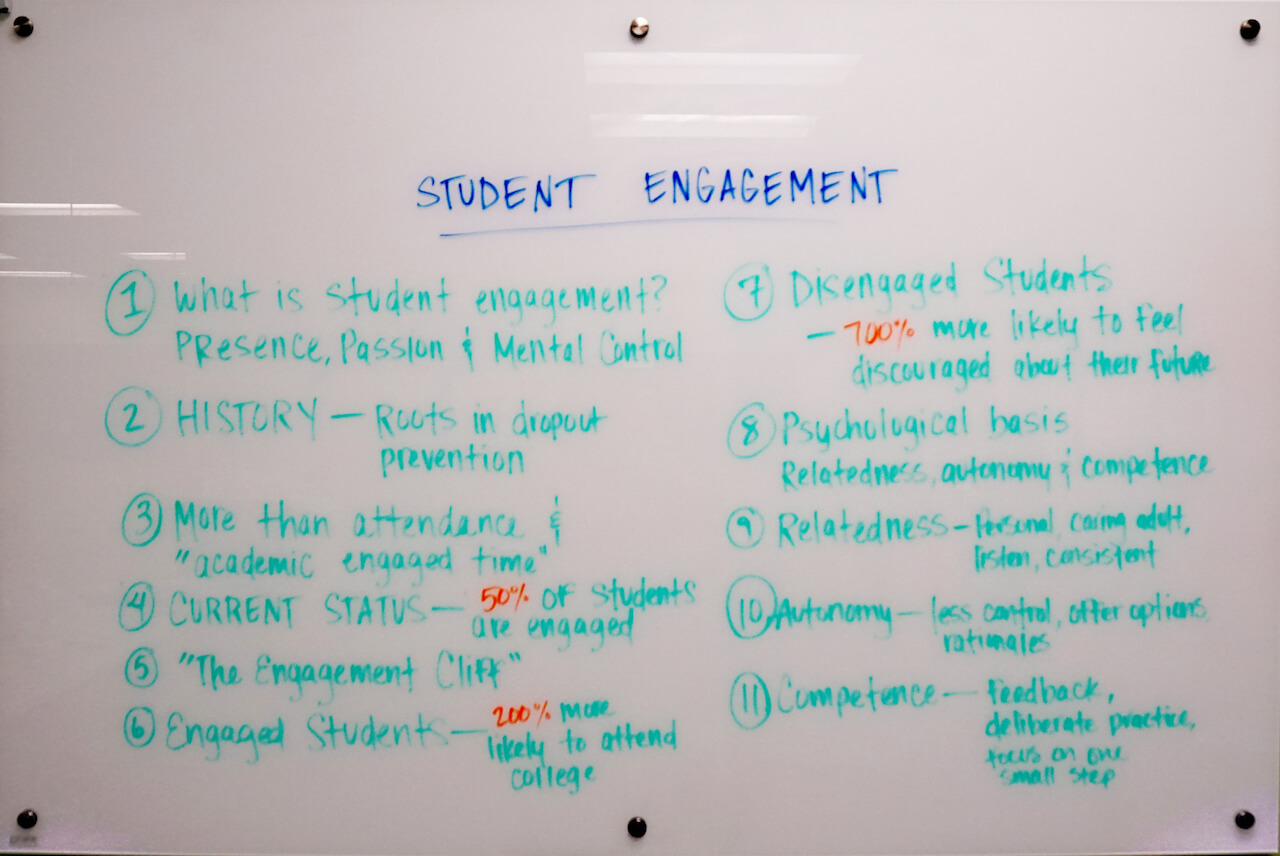 STUDENT ENGAGEMENT
1 What is student engagement?
Presence, Passion & Mental Control
2 HISTORY — Roots in dropout
prevention
3 More than attendance &
"academic engaged time"
4 CURRENT STATUS — 50% of students
are engaged
5 "The Engagement Cliff"
6 Engaged Students — 200% more
likely to attend
college
7 Disengaged Students
— 700% more likely to feel
discouraged about their future
8 Psychological basis
Relatedness, autonomy & competence
9 Relatedness — Personal, caring adult,
listen, consistent
10 Autonomy — less control, offer options,
rationales
11 Competence — feedback,
deliberate practice,
focus on one
small step